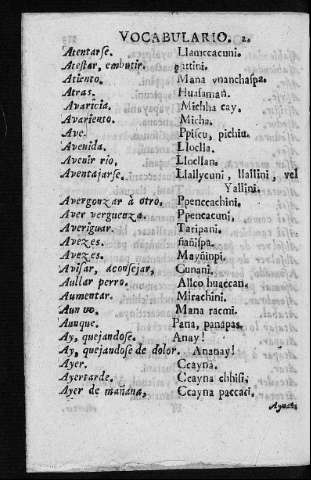 VOCABULARIO. 2.
Atentarse. Llamccacuni.
Atestar, embutir. gattini.
Atiento. Mana vnanchaspa.
Atras. Huasaman.
Avaricia. Michha cay.
Avariento. Micha.
Ave. Ppiscu, pichiu.
Avenida. Lloclla.
Avenir rio, Lloellan.
Aventajarse. Llallycuni, llallini, vel
Yallini.
Avergonzar à otro, Ppenccachini.
Aver verguenza. Ppencacuni,
Averiguar. Taripani.
Avezes. ñañispa.
Avezes. Mayñinpi.
Avisar, aconsejar, Cunani.
Aullar perro. Allco huaccan.
Aumentar. Mirachini.
Aun no. Mana racmi.
Aunque. Pana, panapas.
Ay, quejandose. Anay!
Ay, quejandose de dolor. Ananay!
Ayer. Ccayna.
Ayertarde. Ccayna chhisi,
Ayer de mañana, Ccayna paccari.